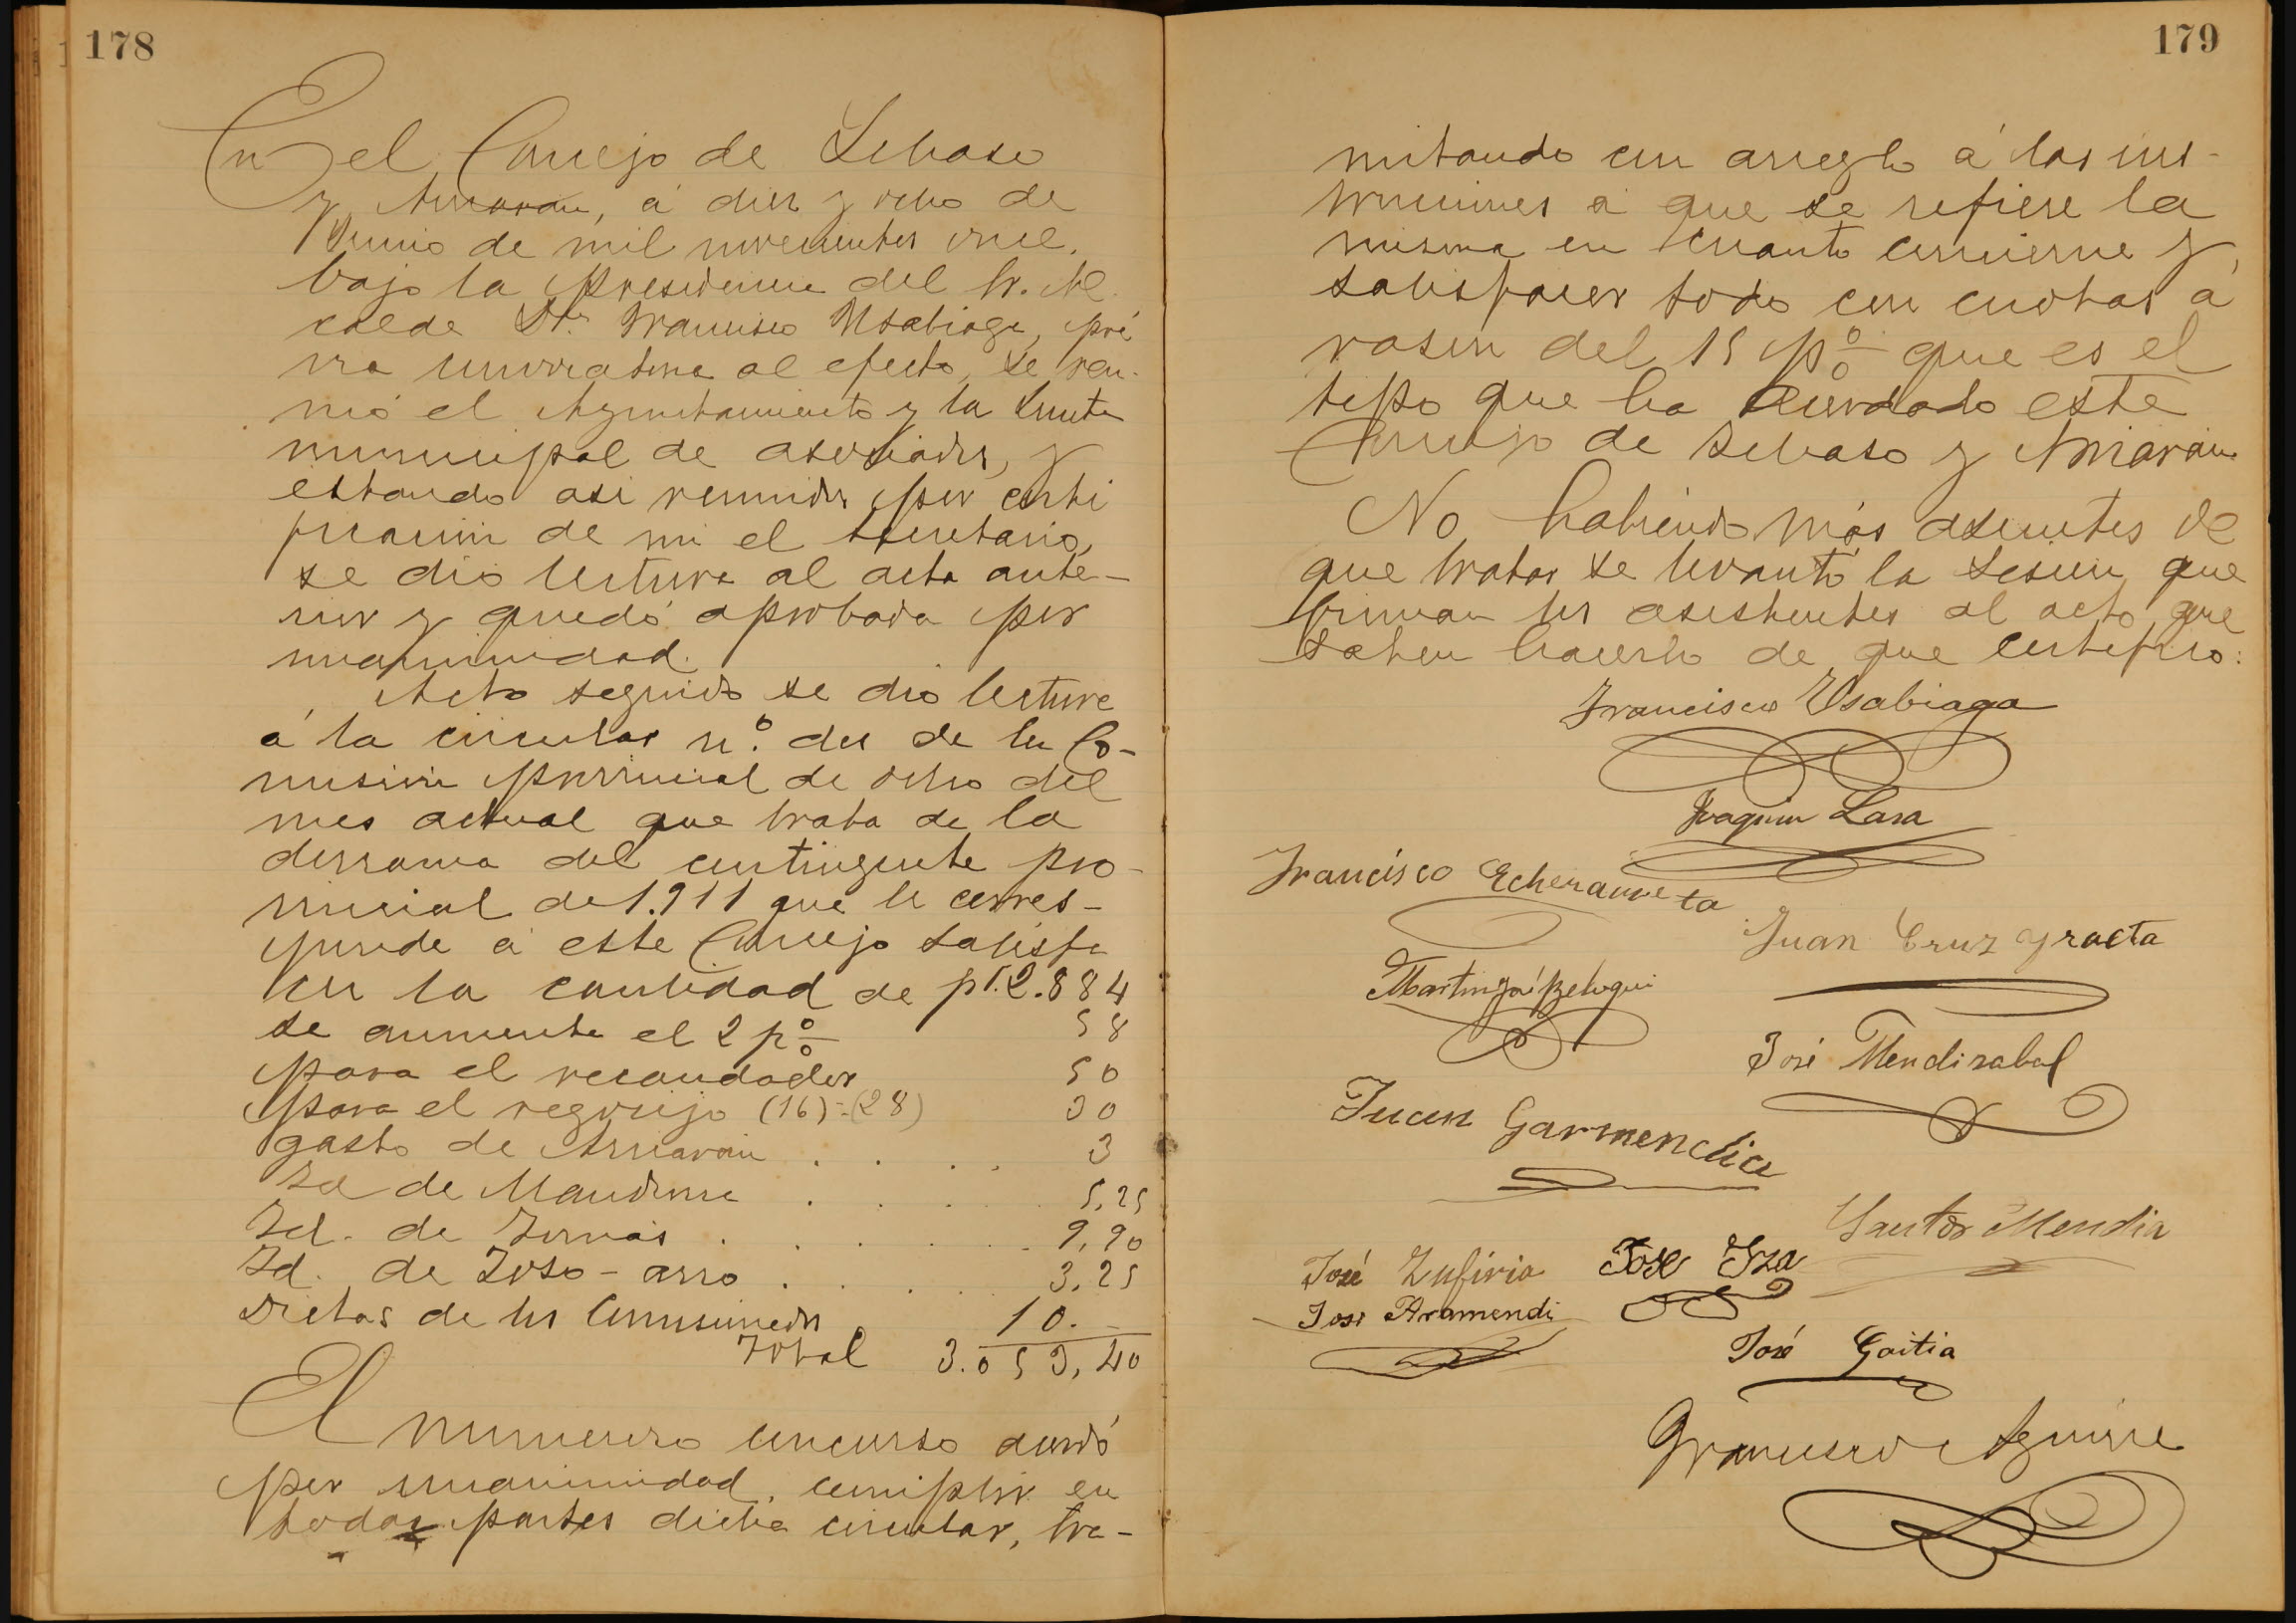 178
En el Concejo de Lebaso
y Arriarán, á diez y ocho de
Junio de mil novecientos once.
bajo la Presidencia del Sr. Al
calde Dn. Francisco Usabiaga, pré
via convocatoria al efecto, se reu-
nió el Ayuntamiento y la Junta
municipal de asociados, y
estando asi reunidos por certi
ficación de mi el Secretario,
se dió lectura al acta ante-
rior y quedó aprobada por
unanimidad.
Acto seguido se dió lectura
á la circular n.º dos de la Co-
misión provincial de ocho del
mes actual que trata de la
derrama del contingente pro-
vincial de 1.911 que le corres-
ponde á este Concejo satisfa
cer la cantidad de pt. 2.884
se aumenta el 2 p% 58
para el recaudador 50
para el regocijo (16)=(28) 30
gasto de Arriarán . . . . 3
Id de Mandiora . . . . 5,25
Id. de Zornás . . . . . 9,90
Id. de Zoso-arro . . . . 3,25
Dietas de los Comisionados 10.-
Total 3.053,40
El numeroso concurso acordó
por unanimidad, cumplir en
todas partes dicha circular, tra-
179
mitando con arreglo á las ins-
trucciones á que se refiere la
misma en cuanto concierne y
satisfacer todo con cuotas á
rasón del 15 p% que es el
tipo que ha acordado este
Concejo de Lebaso y Arriarán.
No habiendo más asuntos de
que tratar se levantó la sesión, que
firman los asistentes al acto, que
saben hacerlo de que certifico:
Francisco Usabiaga
Joaquin Lasa
Francisco Echezarreta
Juan Cruz Yraeta
Martin
José Mendizabal
Juan Garmendia
Santos Mendia
José Zufiria
Jose Yza
Jose Aramendi
José Goitia
Francisco Aguirre